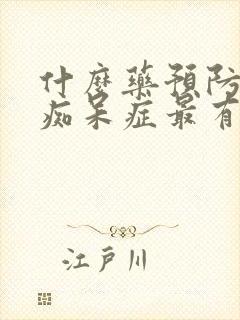 什麼藥預防
痴呆症最有
江戸川